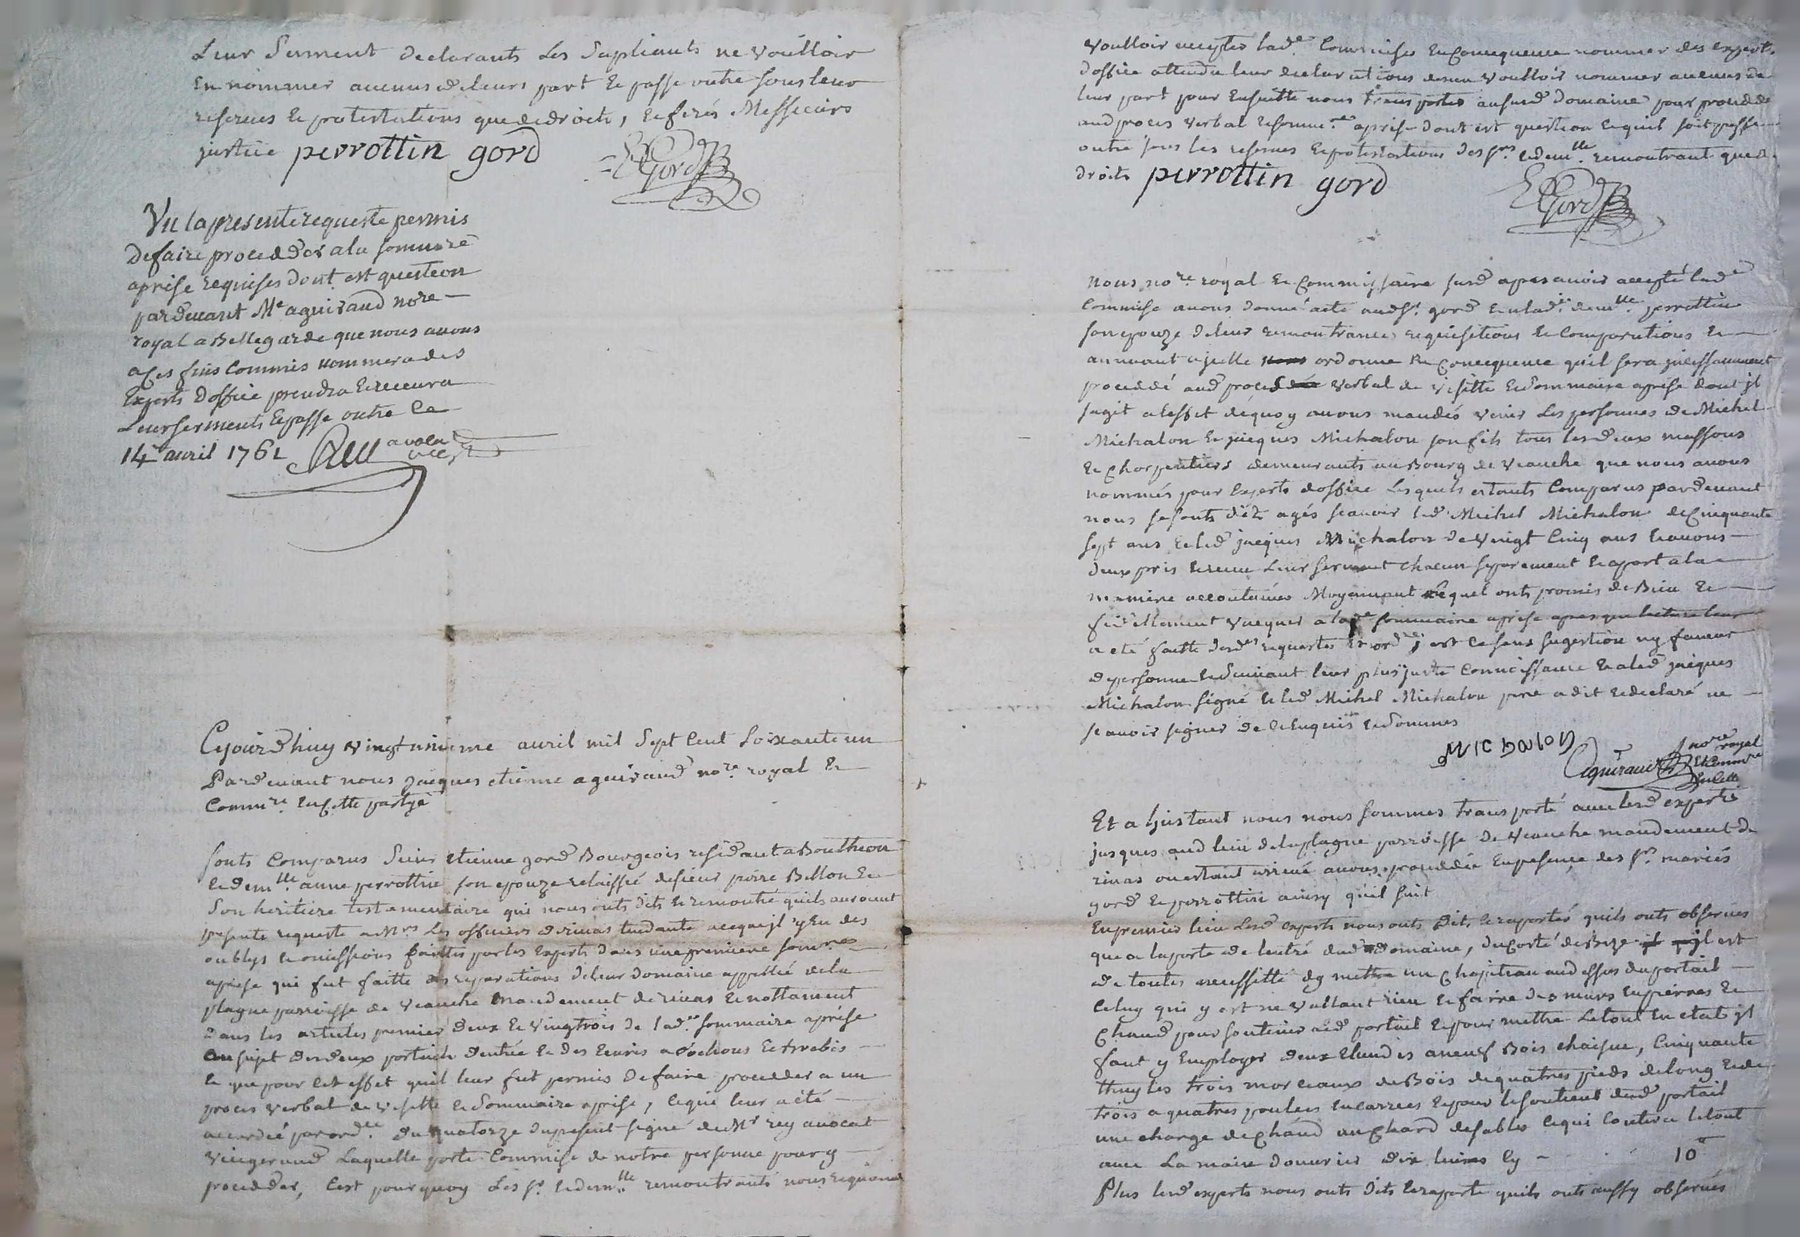 Leur Serment declarants Les Supliants ne voulloir
En nommer aucuns de leurs part Et passé outre sous leur
reserves Et protestations que de droits, Et ferés Messieurs
justice perrottin gord
Gord
Vu la presente requeste permis
de faire proceder a la sommaire
aprise requises dont est question
pardevant Me aguiraud nore
royal a Bellegarde que nous avons
a Ces fins Commis nommera des
Experts d'office prendra Et recevra
Leur serments Et passé outre Ce
14 avril 1761 Rey avocat
Cejourd'huy vingt unieme avril mil Sept Cent Soixante un
Pardevant nous jacques etienne aguiraud nore royal Et
Commre En Cette partye
sonts Comparus Sieur Etienne gord Bourgeois residant a Bouthéon
Et demlle anne perrottin son epouze relaissée de sieur pierre Billon Et
Son heritiere testamentaire qui nous onts dits Et remontré quils auroient
presenté requeste a Mrs Les officiers de rivas tendante a ce qu'il y Eu des
oublys Et omissions faittes par les Experts dans une premiere sommre
aprise qui fut faitte des reparations de leur domaine appellée de la
plagne parroisse de Veauche mandement de rivas Et nottament
dans les articles premier deux Et vingtrois de lade sommaire aprise
au sujet des deux portails d'entrée Et des Ecuries a Cochons Et brebis
Et que pour Cet effet quil leur fut permis de faire proceder a un
proces verbal de visitte Et Sommaire aprise, Ce qui leur a eté
accordée par ordce du quatorze du present signé de Mr rey avocat
viegerand Laquelle porte Commise de notre personne pour y
proceder, C'est pourquoy Les sr Et demlle remontrants nous requierent
voulloir accepter lade Commise En Consequence nommer des experts
d'office attendu leur declarations de ne voulloir nommer aucuns de
leur part pour Ensuitte nous transporter au susd domaine pour proceder
aud proces verbal Et sommre aprise dont est question Et quil soit passé
outre sous les reserves Et protestations des srs Et demlle remontrant que de
droits perrottin gord
Gord
Nous nore royal Et Commissaire susd apres avoir accepté lade
Commise avons donné acte aud sr gord Et a lade demlle perrottin
son epouze de leur remontrances requisitions Et Comparutions Et
avenant a jcelle ordonne En Consequence quil sera jncessamment
procedé aud proces verbal de visitte Et Sommaire aprise dont jl
s'agit a l'effet de quoy avons mandés venir Les personnes de Michel
Michalon Et jacques Michalon son fils tous les deux massons
Et Charpentiers demeurants au Bourg de Veauche que nous avons
nommés pour Experts d'office Lesquels estants Comparus pardevant
nous se sonts dits agés scavoir led Michel Michalon de Cinquante
sept ans Et led jacques Michalon de vingt Cinq ans Et avons
d'eux pris Et receu Leur serment chacun separement Et a part a la
maniere accoutumée Moyennant lequel onts promis de Bien Et
fidellement vacquer a lade sommaire aprise apres que lecture leur
a eté faitte desdes requestes Et ordces Et ce sans sugestion ny faveur
de personne Et Suivant leur plus juste Connoissance Et a led jacques
Michalon signé Et led Michel Michalon pere a dit Et declaré ne
scavoir signer de Ce Enquis Et Sommés
MICHALON
Aguiraud nore royal Et Commre
Et a l'jnstant nous nous sommes transporté avec lesd experts
jusques aud lieu de la plagne parroisse de Veauche mandement de
rivas ou estant arrivé avons procedée En presence des srs mariés
gord Et perrottin ainsy qu'il suit
En premier lieu Lesd Experts nous onts dits Et raportés quils onts observés
que a la porte de l'entré dud domaine, du Corté de Bize jl est
de toutes necessitté d'y mettre un Chapiteau au dessus du portail
Celuy qui y est ne vallant rien Et faire des murs En pierres Et
Chaud pour soutenir led portail Et pour mettre Letout En etat jl
faut y Employer deux Chandes a neuf Bois Chaisne, Cinquante
thuylles trois morceaux de Bois de quatres pieds de long Et de
trois a quatres poulces En carrées Et pour le soutient dud portail
une charge de Chaud un Chard de sables Ce qui Coutera letout
avec La main d'ouvrier dix livres Cy - 10
Plus lesd experts nous onts dits Et raporté quils onts aussy observés